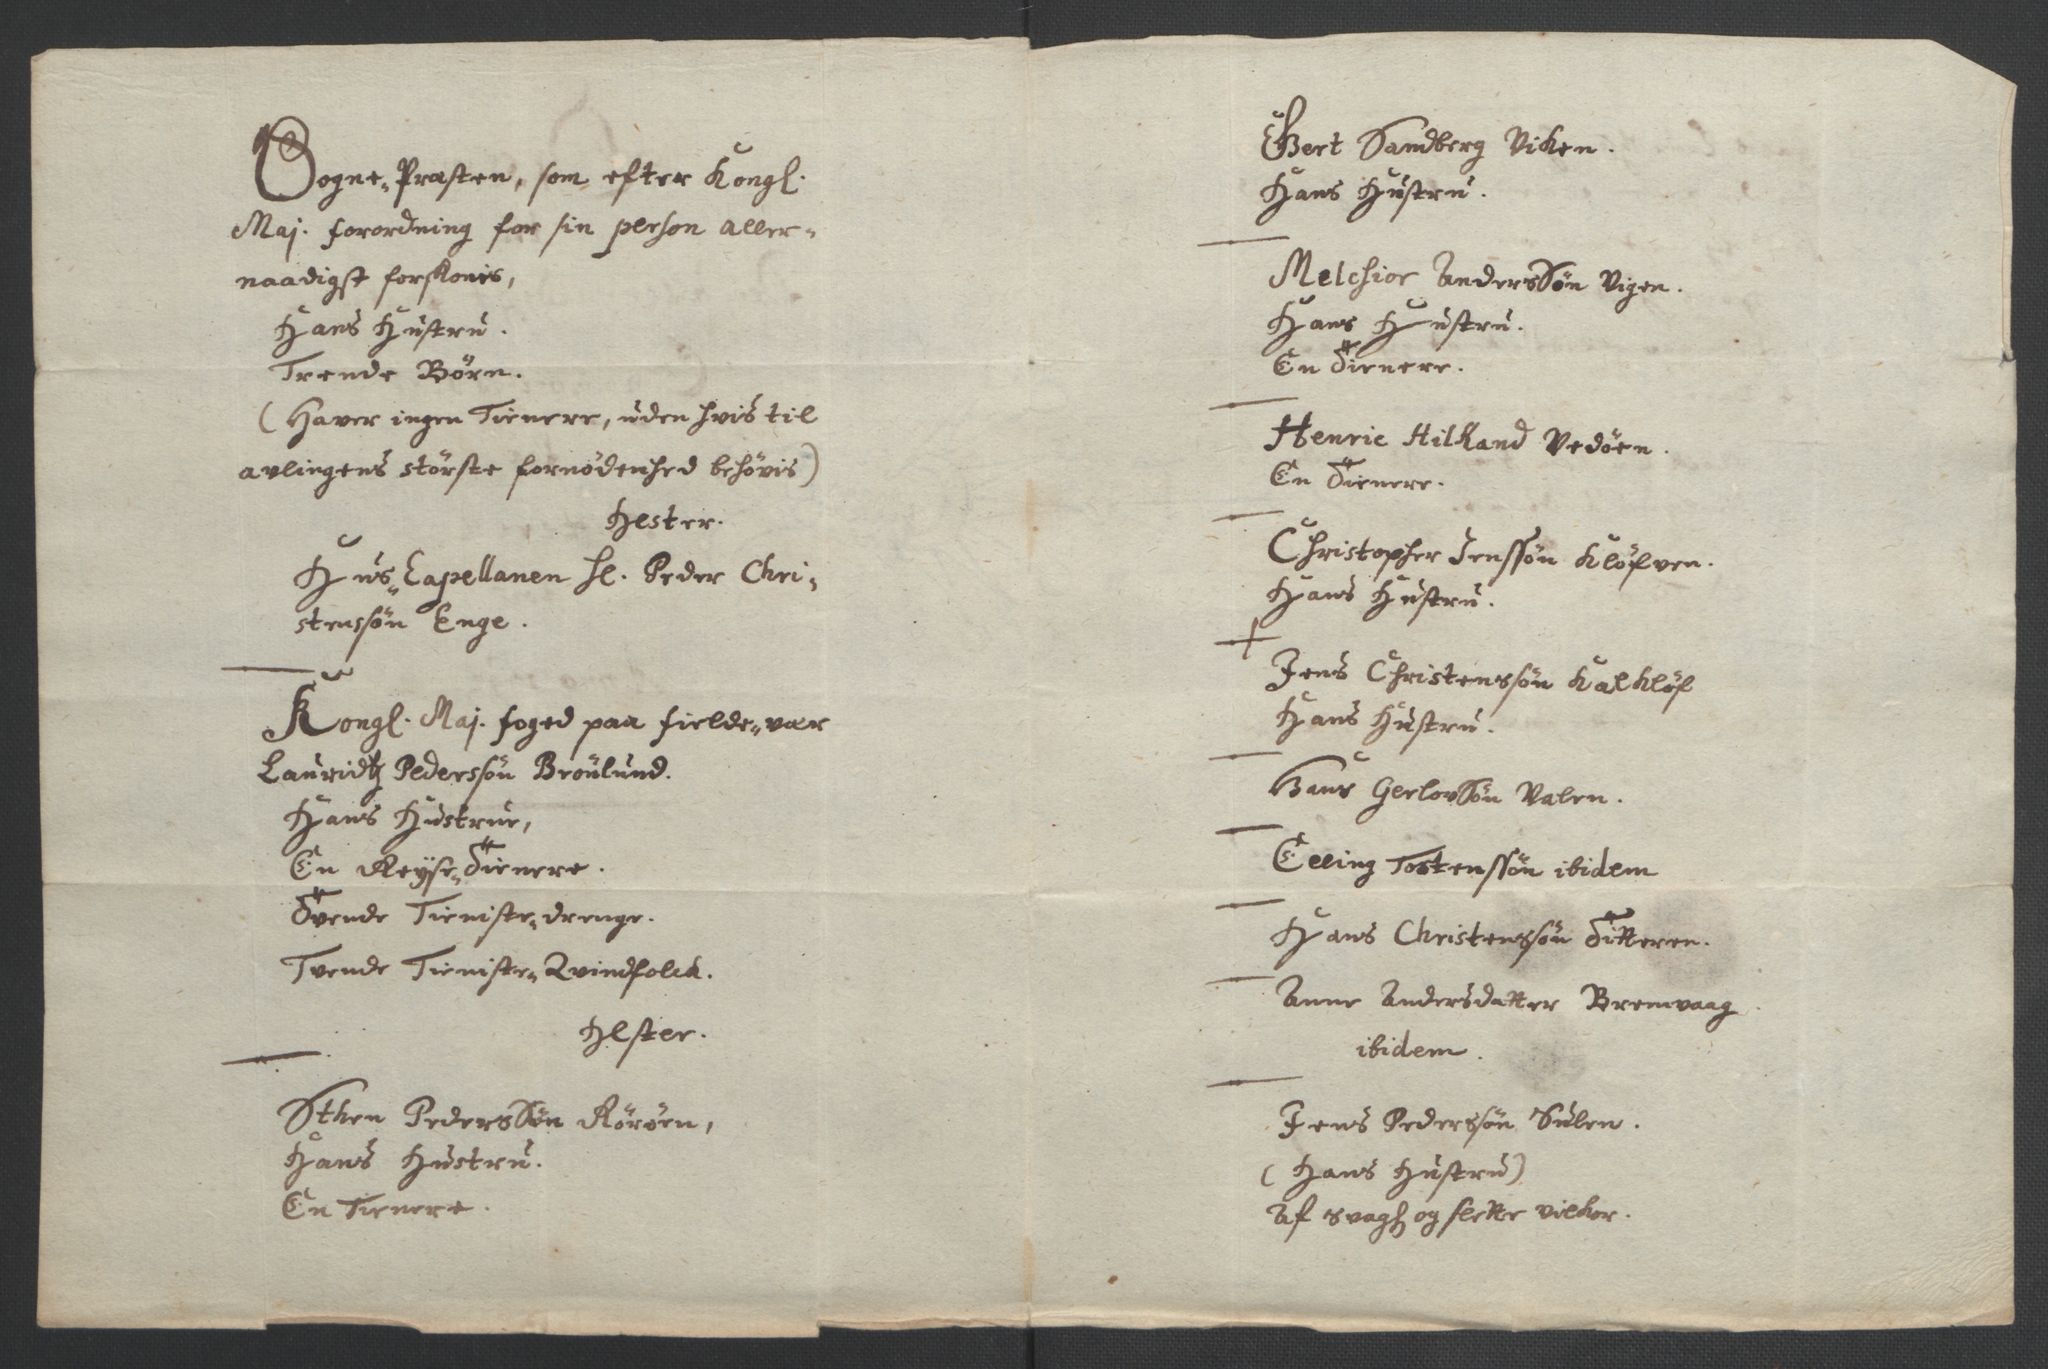 Sogne-Præsten, som efter Kongl.
Maj. forordning for sin person aller-
naadigst forskonis,
Hans Hustru.
Trende Börn.
(Haver ingen Tienere, uden hvis til
avlingens störste fornödenhed behövis)
Hester.
Hus-Capellanen hl. Peder Chri-
stenssön Enge.
Kongl. Maj. foged paa fielde-vær
Lauridtz Pederssön Broulund.
Hans Hustrue,
En Reyse-Tienere.
Tvende Tieniste-drenge.
Tvende Tieniste-Qvindfolck.
Hester.
Sthen Pederssön Röröen,
Hans Hustru.
En Tienere.
Gert Sandberg Viken.
Hans Hustru.
Melchior Anderssön Vigen.
Hans Hustru.
En Tienere.
Henric Hilkand Vedöen.
En Tienere.
Christopher Jenssön Klöfven.
Hans Hustru.
Jens Christenssön Kalklöf
Hans Hustru.
Hans Gerlovssön Valen.
Elling Tostenssön ibidem
Hans Christenssön Titteren.
Anne Andersdatter Bremvaag
ibidem.
Jens Pederssön Sulen.
(Hans Hustru)
Af svag og slette vilkor.